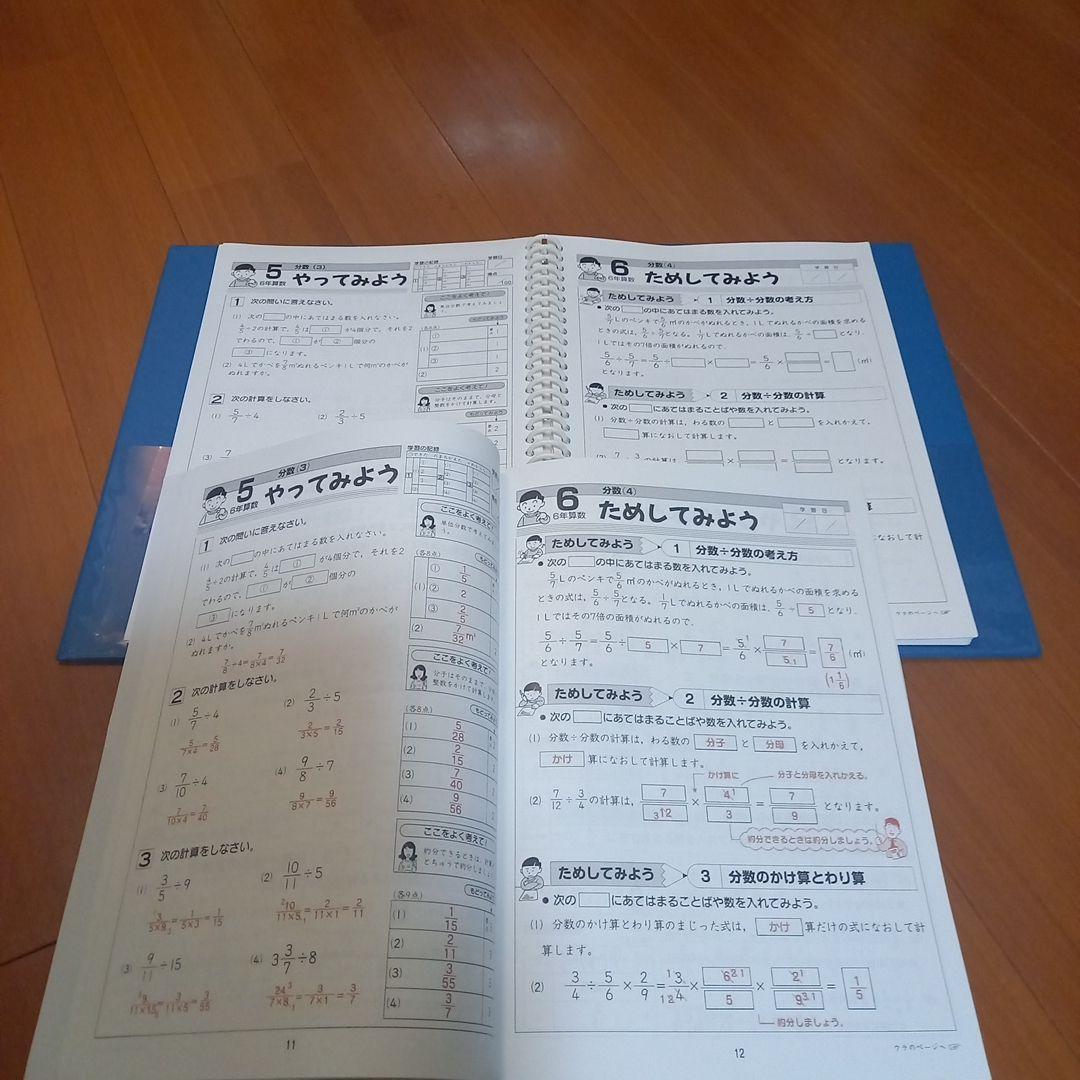 分数(3)
5 やってみよう
6年算数
学習の記録
学習日
得点
100
1 次の問いに答えなさい。
(1) 次の□の中にあてはまる数を入れなさい。
4/5÷2の計算で,4/5は ① が4個分で,それを2
でわるので, ① が ② 個分の
③ になります。
(2) 4Lでかべを7/8m²ぬれるペンキ1Lで何m²のかべが
ぬれますか。
2 次の計算をしなさい。
(1) 5/7÷4 (2) 2/3÷5
(3) 7
ここをよく考えて!
単位分数で考えてみましょ
もどってみよう
(各8点)
(1)
①
②
③
(2)
ここをよく考えて!
分子はそのままで,分母と
整数をかけて計算します。
もどってみよう
分数(4)
6 ためしてみよう
6年算数
学習日
ためしてみよう 1 分数÷分数の考え方
●次の□の中にあてはまる数を入れてみよう。
5/7Lのペンキで5/6m²のかべがぬれるとき,1Lでぬれるかべの面積を求める
ときの式は,5/6÷5/7となる。1/7Lでぬれるかべの面積は,5/6÷□となり,
1Lではその7倍の面積がぬれるので,
5/6÷5/7=5/6÷□×□=5/6×□/□=□(m²)
となります。
ためしてみよう 2 分数÷分数の計算
●次の□にあてはまることばや数を入れてみよう。
(1) 分数÷分数の計算は,わる数の□と□を入れかえて,
□算になおして計算します。
(2) 7/12÷3/4の計算は, □/□×□/□=□/□ となります。
ウラのページへ
分数(3)
5 やってみよう
6年算数
学習の記録
1 次の問いに答えなさい。
(1) 次の□の中にあてはまる数を入れなさい。
4/5÷2の計算で,4/5は ① が4個分で,それを2
でわるので, ① が ② 個分の
③ になります。
(2) 4Lでかべを7/8m²ぬれるペンキ1Lで何m²のかべが
ぬれますか。
7/8÷4=7/(8×4)=7/32
2 次の計算をしなさい。
(1) 5/7÷4 (2) 2/3÷5
5/(7×4)=5/28 2/(3×5)=2/15
(3) 7/10÷4 (4) 9/8÷7
7/(10×4)=7/40 9/(8×7)=9/56
3 次の計算をしなさい。
(1) 3/5÷9 (2) 10/11÷5
3/(5×9)=1/(5×3)=1/15 10/(11×5)=2/(11×1)=2/11
(3) 9/11÷15 (4) 3 3/7÷8
9/(11×15)=3/(11×5)=3/55 24/(7×8)=3/(7×1)=3/7
11
ここをよく考えて!
単位分数で考えてみ
もどってみ
(各8点)
(1)
① 1/5
② 2
③ 2/5
(2) 7/32 m²
ここをよく考えて!
分子はそのままで,
整数をかけて計算し
もどってみ
(各8点)
(1) 5/28
(2) 2/15
(3) 7/40
(4) 9/56
ここをよく考えて!
約分できるときは,計算の
とちゅうで約分しま
もどってみ
(各9点)
(1) 1/15
(2) 2/11
(3) 3/55
(4) 3/7
分数(4)
6 ためしてみよう
6年算数
学習日
ためしてみよう 1 分数÷分数の考え方
●次の□の中にあてはまる数を入れてみよう。
5/7Lのペンキで5/6m²のかべがぬれるとき,1Lでぬれるかべの面積を求める
ときの式は,5/6÷5/7となる。1/7Lでぬれるかべの面積は,5/6÷ 5 となり,
1Lではその7倍の面積がぬれるので,
5/6÷5/7=5/6÷ 5 × 7 =5/6× 7/5 = 7/6 (m²)
となります。 (1 1/6)
ためしてみよう 2 分数÷分数の計算
●次の□にあてはまることばや数を入れてみよう。
(1) 分数÷分数の計算は,わる数の 分子 と 分母 を入れかえて,
かけ 算になおして計算します。
かけ算に 分子と分母を入れかえる。
(2) 7/12÷3/4の計算は, 7/12 × 4/3 = 7/9 となります。
約分できるときは約分しましょう。
ためしてみよう 3 分数のかけ算とわり算
●次の□にあてはまることばや数を入れてみよう。
(1) 分数のかけ算とわり算のまじった式は, かけ 算だけの式になおして計
算します。
(2) 3/4÷5/6×2/9=3/4× 6/5 × 2/9 = 1/5
約分しましょう。
12
ウラのページへ